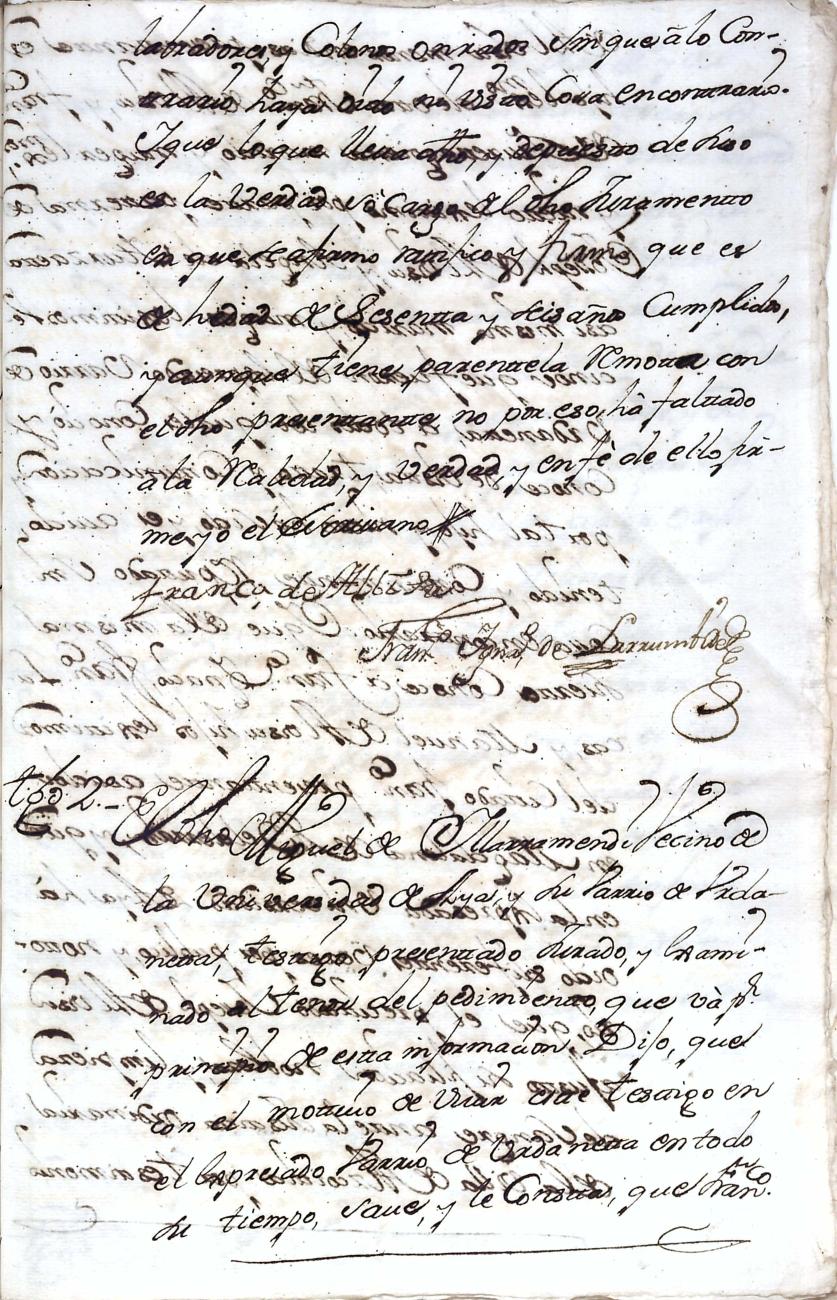 labradores, y Colonos onrados sin que â lo Con-
trario haya oido ni visto Cosa en contrario.
Y que lo que lleva dho, y depuesto de suso
es la Verdad so cargo del dho Juramento
en que se afirmo ratifico y firmò que es
de hedad de Sesenta y seis años Cumplidos,
y aunque tiene parentela remota con
el dho presentante no por eso, hà faltado
a la Realidad, y Verdad, y en fè de ello fir-
me yo el Escrivano
Franco de
Fran.co Ign.o de Larrumbide
tgo. 2.-
El dho Miguel de Illarramendi Vecino de
la Universidad de Aya, y su Varrio de Urda-
neta, testigo presentado Jurado, y Exami-
nado al tenor del pedimiento, que và pr.
principio de esta informacion, Dijo, que
con el motivo de vivir este testigo en
el Expresado Varrio de Urdaneta en todo
su tiempo, save, y le Consta, que Fran.co